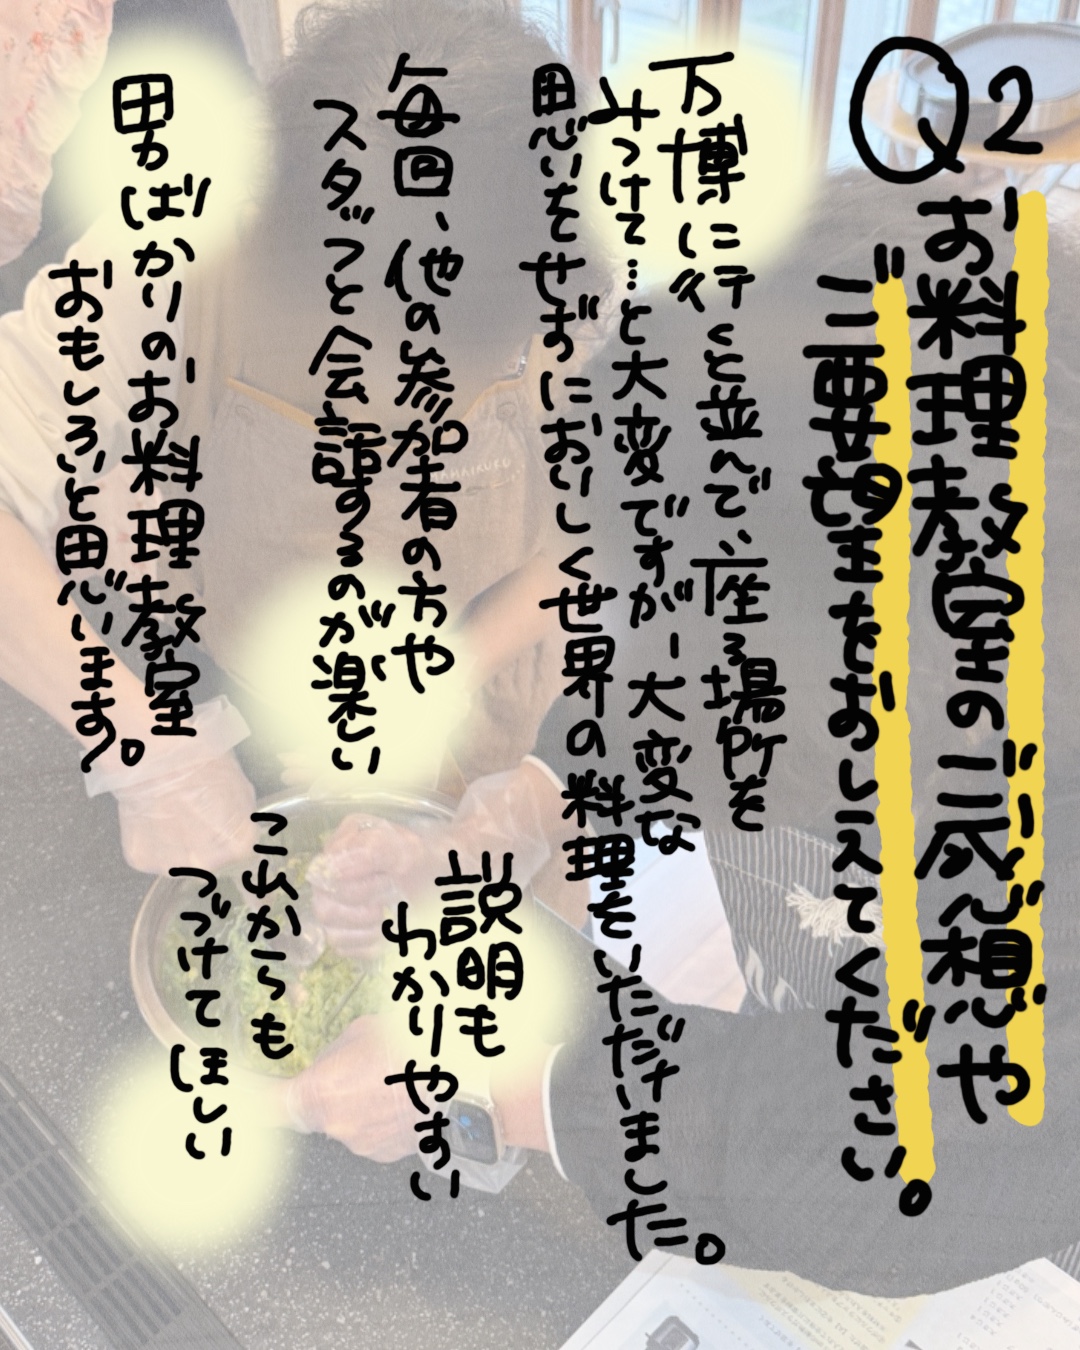 Q2
お料理教室のご感想や
ご要望をおしえてください。
万博に行くと並んで、座る場所を
みつけて…と大変ですが、大変な
思いをせずにおいしく世界の料理をいただけました。
毎回、他の参加者の方や
スタッフと会話するのが楽しい
説明も
わかりやすい
男ばかりのお料理教室
おもしろいと思います。
これからも
つづけてほしい